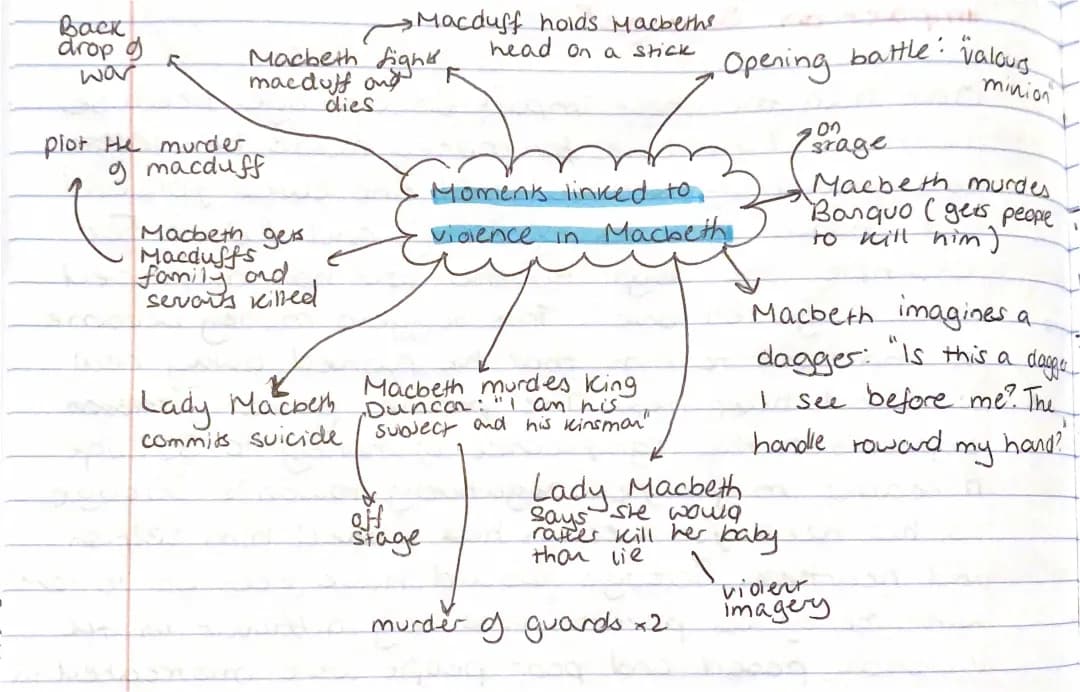 Back
drop of
war
Macbeth fights
macduff and
dies
Macduff holds Macbeths
head on a stick
Opening battle: "valous
minion"
plot the murder
of macduff
Moments linked to
violence in Macbeth
on
stage
Macbeth murdes
Banquo (gets people
to kill him)
Macbeth gets
Macduffs
family and
servats killed
Macbeth imagines a
dagger: "Is this a dagger
I see before me? The
handle toward my hand?
Lady Macbeth
commits suicide
Macbeth murdes King
Duncan: "I am his
subject and his kinsman"
off
stage
Lady Macbeth
says she would
rather kill her baby
than lie
violent
imagery
murder of guards x2